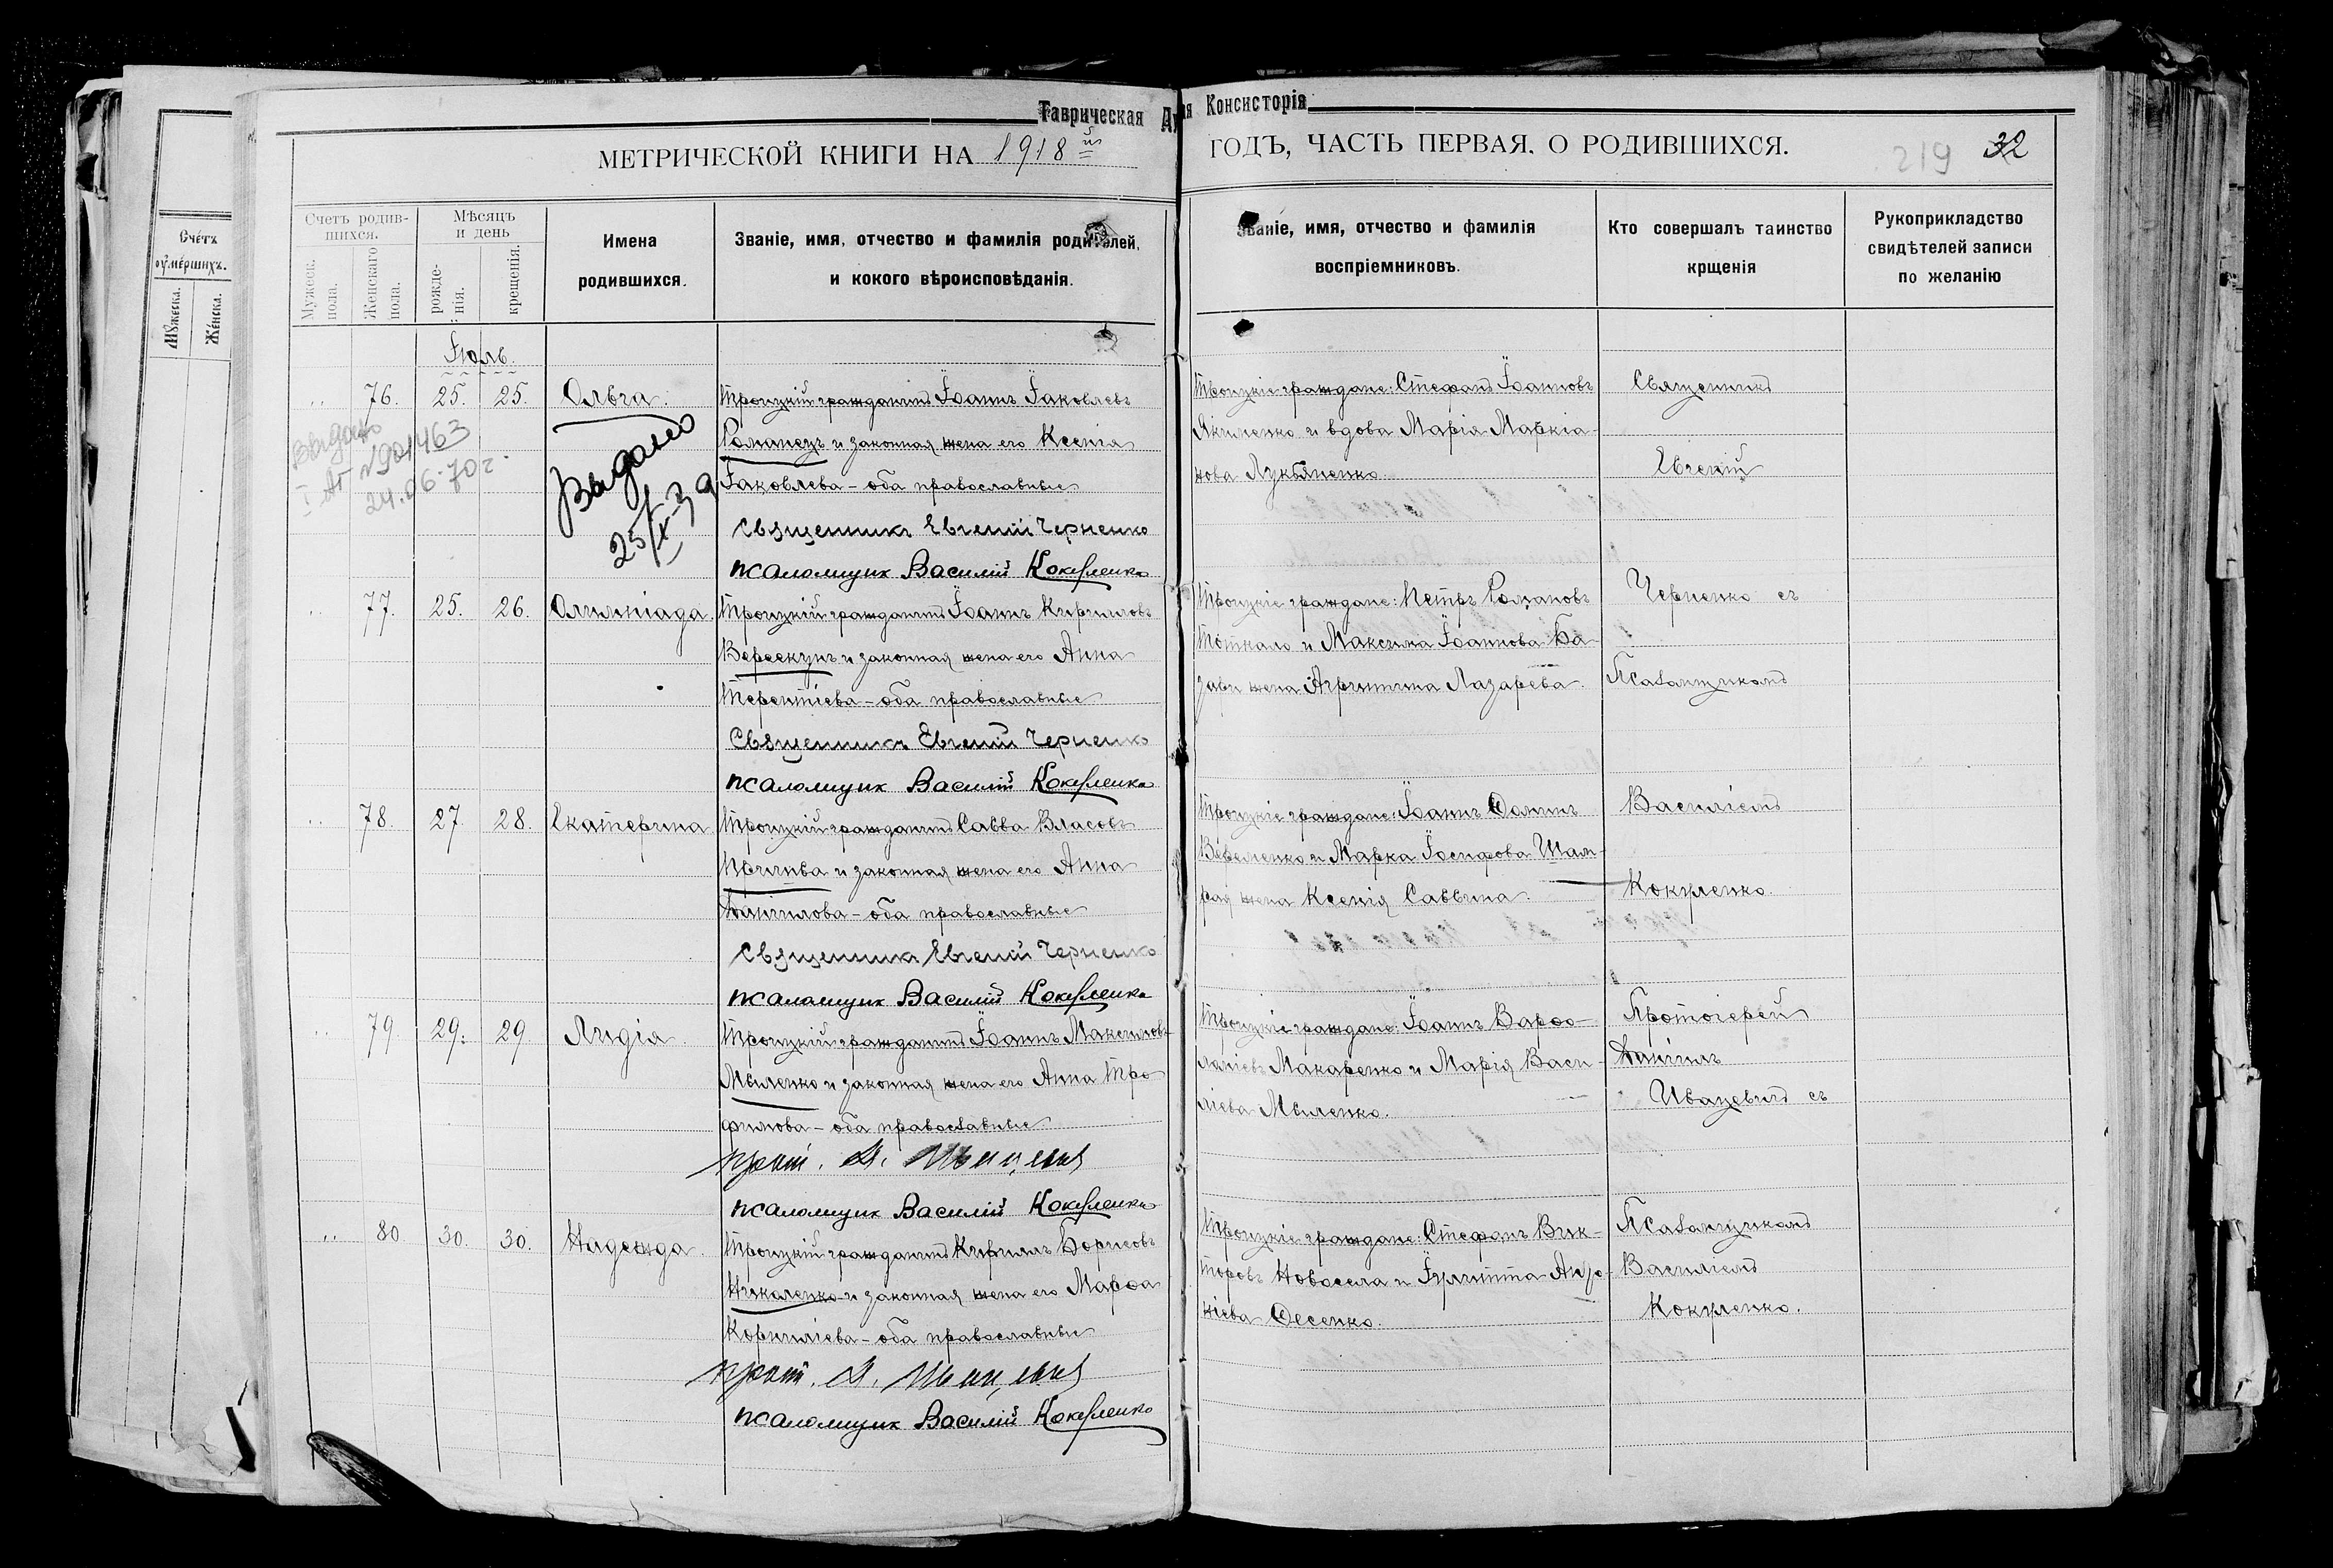 Таврическая Ду
ая Консисторія
МЕТРИЧЕСКОЙ КНИГИ НА 1918 й
ГОДЪ, ЧАСТЬ ПЕРВАЯ. О РОДИВШИХСЯ.
219 32
Счетъ
умершихъ.
Мужеска.
Женска.
Счетъ родив-
шихся.
Мужеск.
пола.
Женскаго
пола.
Мѣсяцъ
и день
рожде-
нія.
крещенія.
Имена
родившихся.
Званіе, имя, отчество и фамилія родителей,
и кокого вѣроисповѣданія.
Званіе, имя, отчество и фамилія
воспріемниковъ.
Кто совершалъ таинство
крщенія
Рукоприкладство
свидѣтелей записи
по желанію
Іюль.
76. 25. 25. Ольга.
Троицкій гражданинъ Іоаннъ Іаковлевъ
Романецъ и законная жена его Ксенія
Іаковлева - оба православные
Священникъ Евгеній Черненко
псаломщик Василій Кокуленко
Выдано
I АГ №901463
24.06.70г.
Выдано
25/IX-39
Троицкіе граждане: Стефанъ Іоанновъ
Якименко и вдова Марія Маркіа-
нова Лукьяненко.
Священникъ
Евгеній
77. 25. 26. Олимпіада.
Троицкій гражданинъ Іоаннъ Кирилловъ
Вереекунъ и законная жена его Анна
Терентіева - оба православные
Священникъ Евгеній Черненко
псаломщик Василій Кокуленко
Троицкіе граждане: Петръ Романовъ
Тоткало и Максима Іоаннова Ба-
зави жена Агрипина Лазарева.
Черненко съ
Псаломщикомъ
78. 27. 28. Екатерина
Троицкій гражданинъ Савва Власовъ
и законная жена его Анна
Даніилова - оба православные
Священникъ Евгеній Черненко
псаломщик Василій Кокуленко
Троицкіе граждане: Іоаннъ Фоминъ
Веременко и Марка Іосифова Шам-
рая жена Ксенія Саввина.
Василіемъ
Кокуленко.
79. 29. 29 Лидія
Троицкій гражданинъ Іоаннъ Максимовъ
Миленко и законная жена его Анна Тро-
фимова - оба православные
прот. Д. Иваневич
псаломщик Василій Кокуленко
Троицкіе граждане: Іоаннъ Варфо-
ломіевъ Макаренко и Марія Васи-
ліева Миленко.
Протоіерей
Даніилъ
Иваневичъ съ
80 30. 30. Надежда.
Троицкій гражданинъ Кириллъ Борисовъ
Николенко и законная жена его Марфа
Корниліева - оба православные
прот. Д. Иваневич
псаломщик Василій Кокуленко
Троицкіе граждане: Стефанъ Вик-
торовъ Новосела и Іулитта Андр-
кіева Фесенко.
Псаломщикомъ
Василіемъ
Кокуленко.